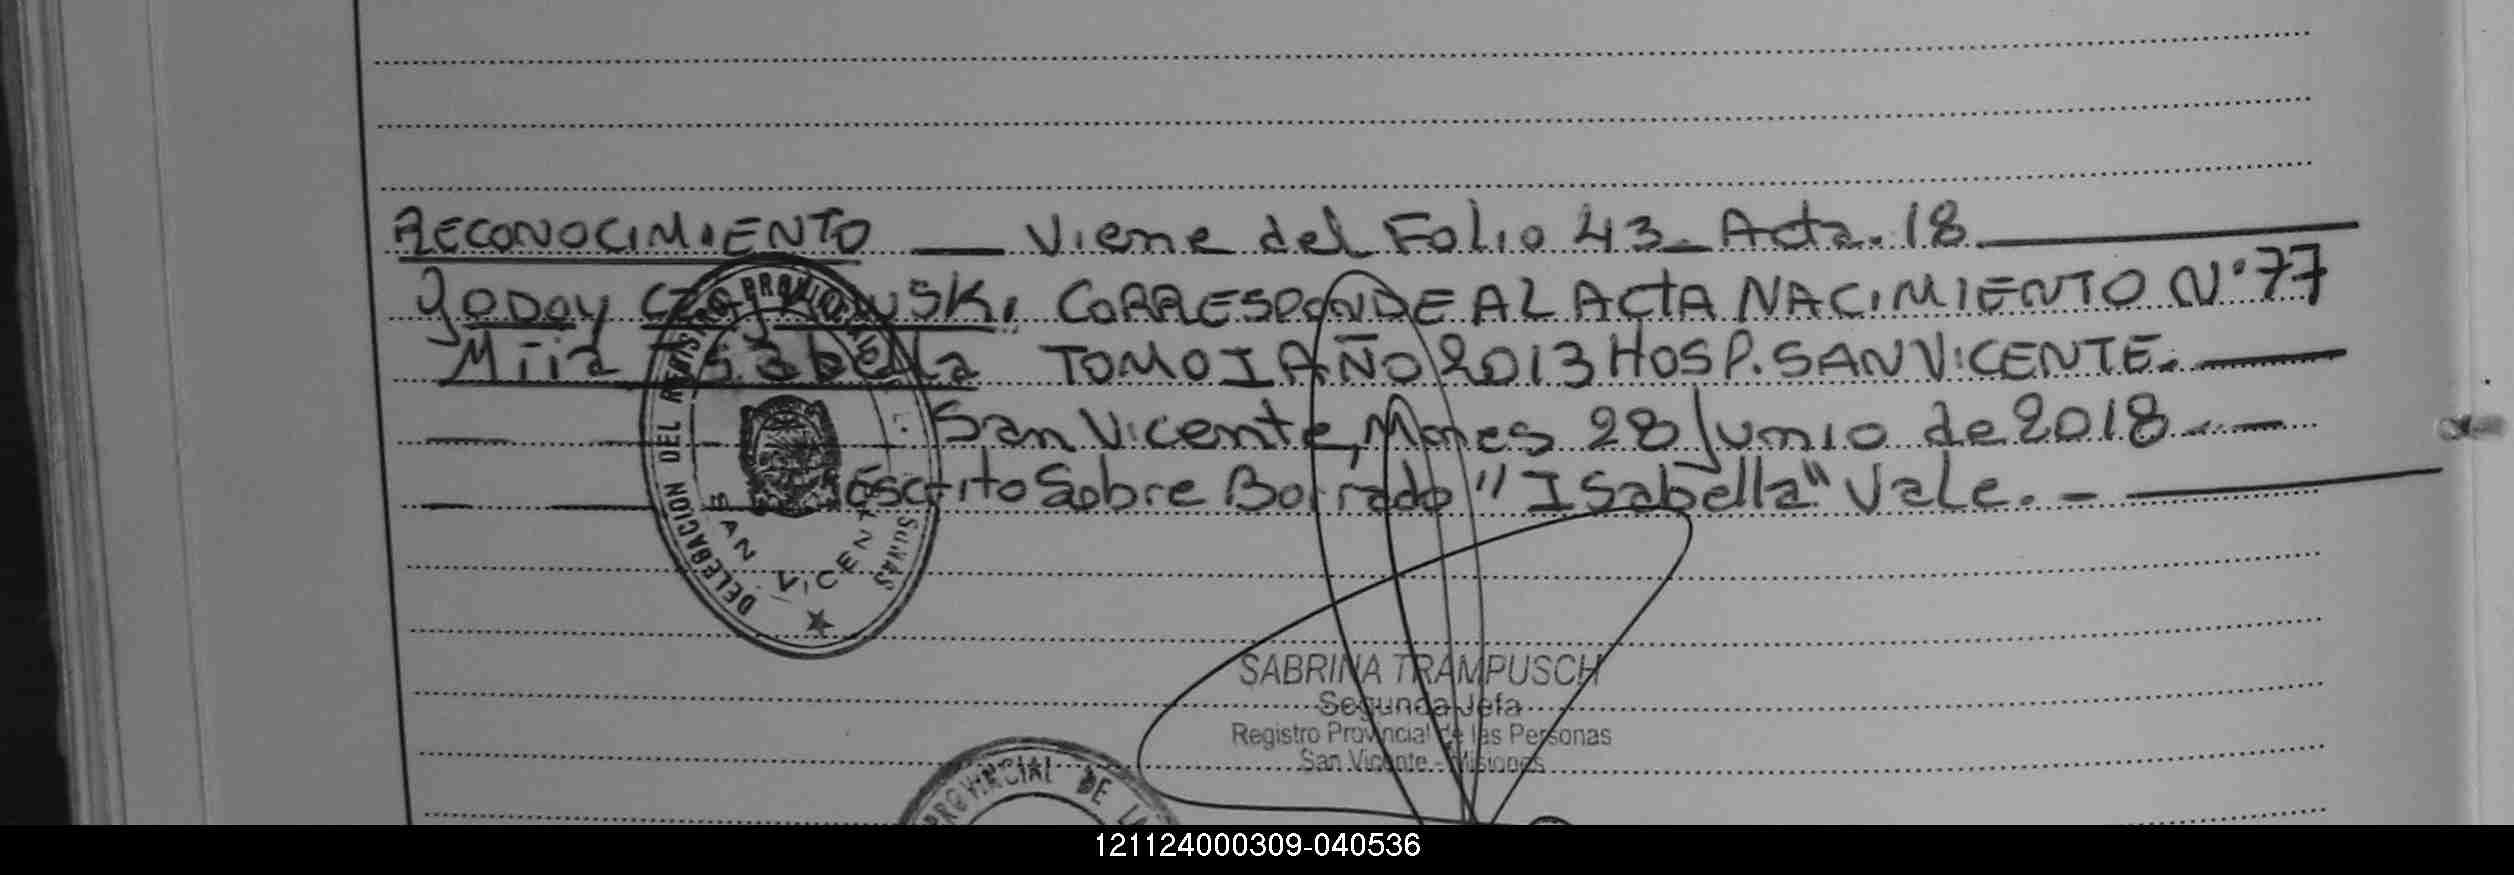 RECONOCIMIENTO — Viene del Folio 43 - Acta. 18
Godoy CORRESPONDE AL ACTA NACIMIENTO N° 77
Miia Isabella TOMO I AÑO 2013 HOSP. SAN VICENTE. —
San Vicente, Mnes 28 Junio de 2018 . —
Escrito Sobre Borrado "Isabella" Vale. -
DELEGACION DEL REGISTRO PROVINCIAL
SAN VICENTE
SABRINA TRAMPUSCH
Segunda Jefa
Registro Provincial de las Personas
San Vicente - Misiones
PROVINCIAL DE LA
121124000309-040536